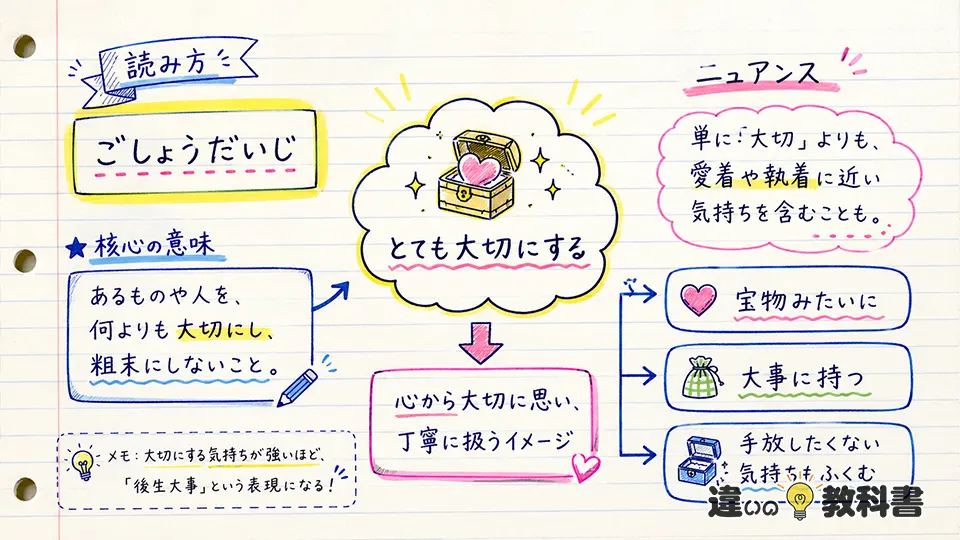 読み方
ごしょうだいじ
★核心の意味
あるものや人を、
何よりも大切にし、
粗末にしないこと。
メモ：大切にする気持ちが強いほど、
「後生大事」という表現になる！
とても大切にする
心から大切に思い、
丁寧に扱うイメージ
ニュアンス
単に「大切」よりも、
愛着や執着に近い
気持ちを含むことも。
宝物みたいに
大事に持つ
手放したくない
気持ちもふくむ
違いの教科書